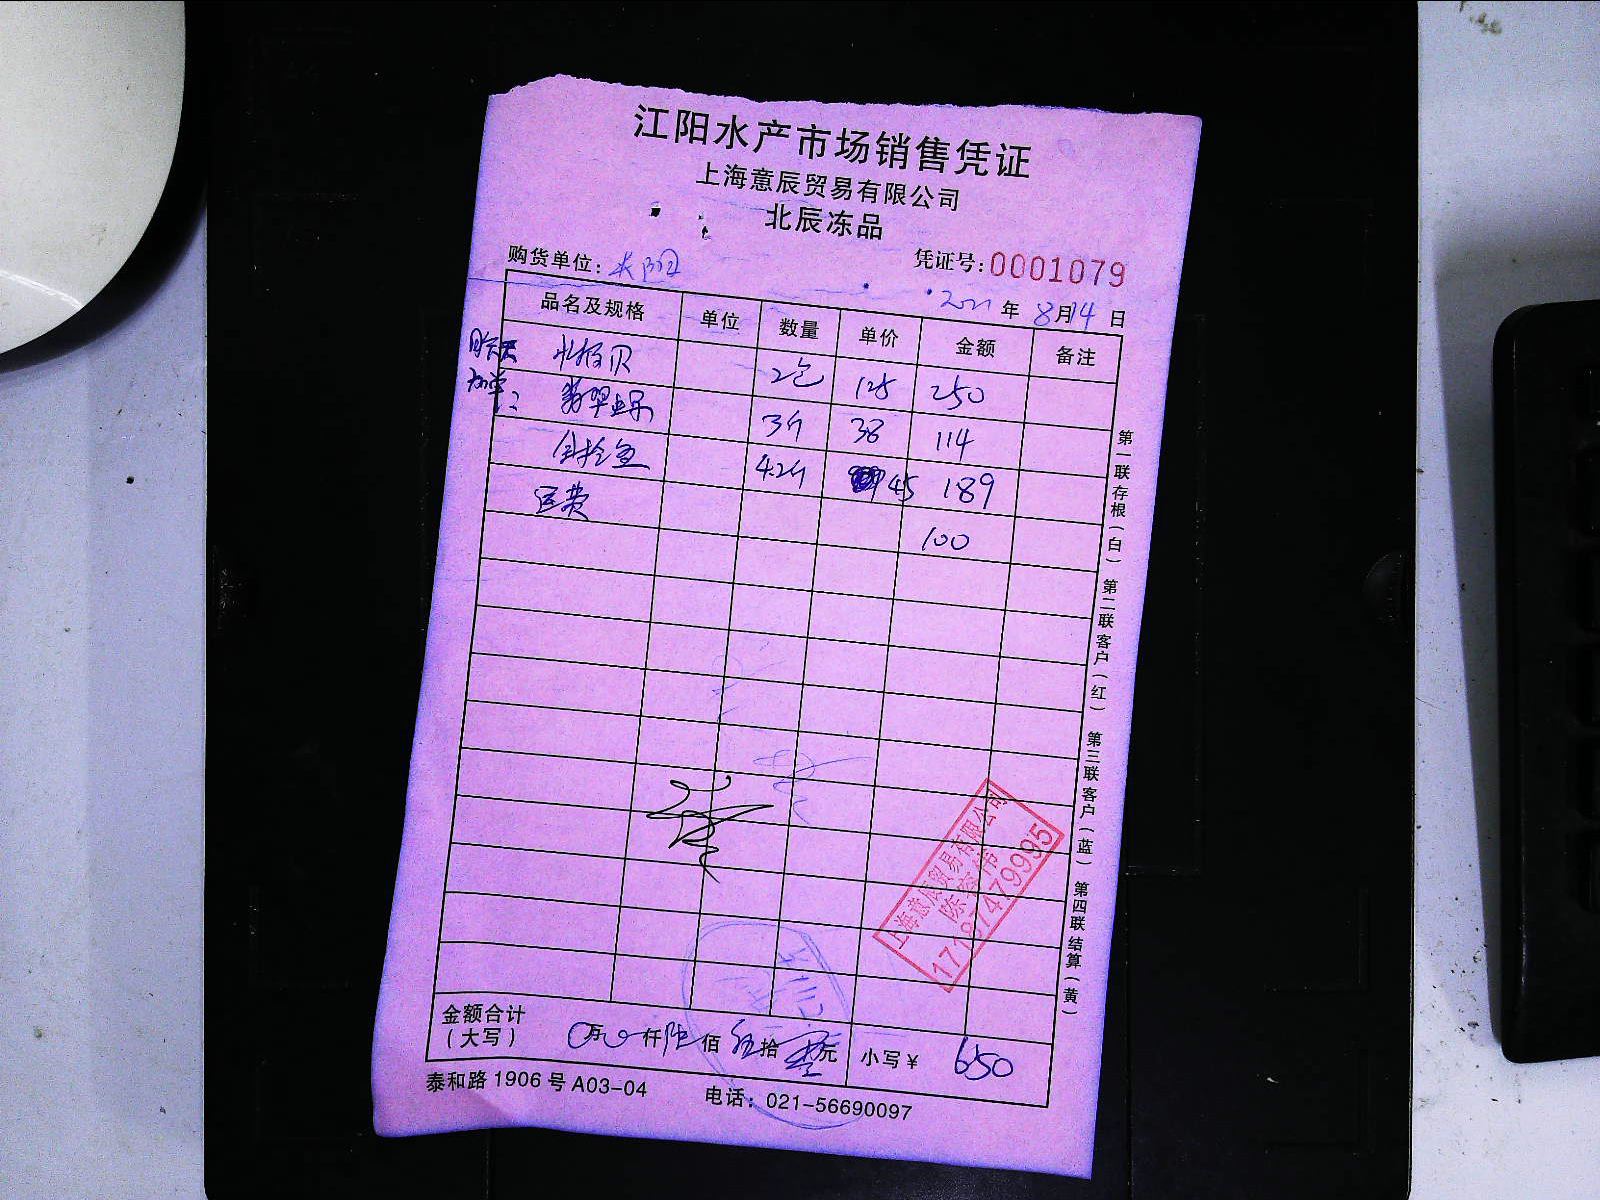 江阳水产市场销售凭证
上海意辰贸易有限公司
北辰冻品
购货单位:
凭证号:0001079
2021年8月14日
品名及规格 单位 数量 单价 金额 备注
昨天 贝 2包 125 250
翡翠螺 3斤 38 114
4.2斤 45 189
运费 100
第一联存根(白) 第二联客户(红) 第三联客户(蓝) 第四联结算(黄)
上海意辰贸易有限公司
17187479995
金额合计
(大写) 0万0仟陆佰伍拾零元 小写¥ 650
泰和路1906号A03-04 电话:021-56690097